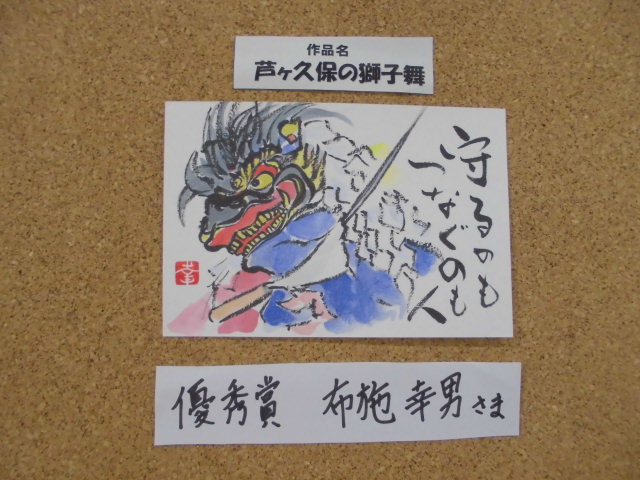 作品名
芦ヶ久保の獅子舞
守るのも
つなぐのも
人
幸
優秀賞 布施 幸男さま